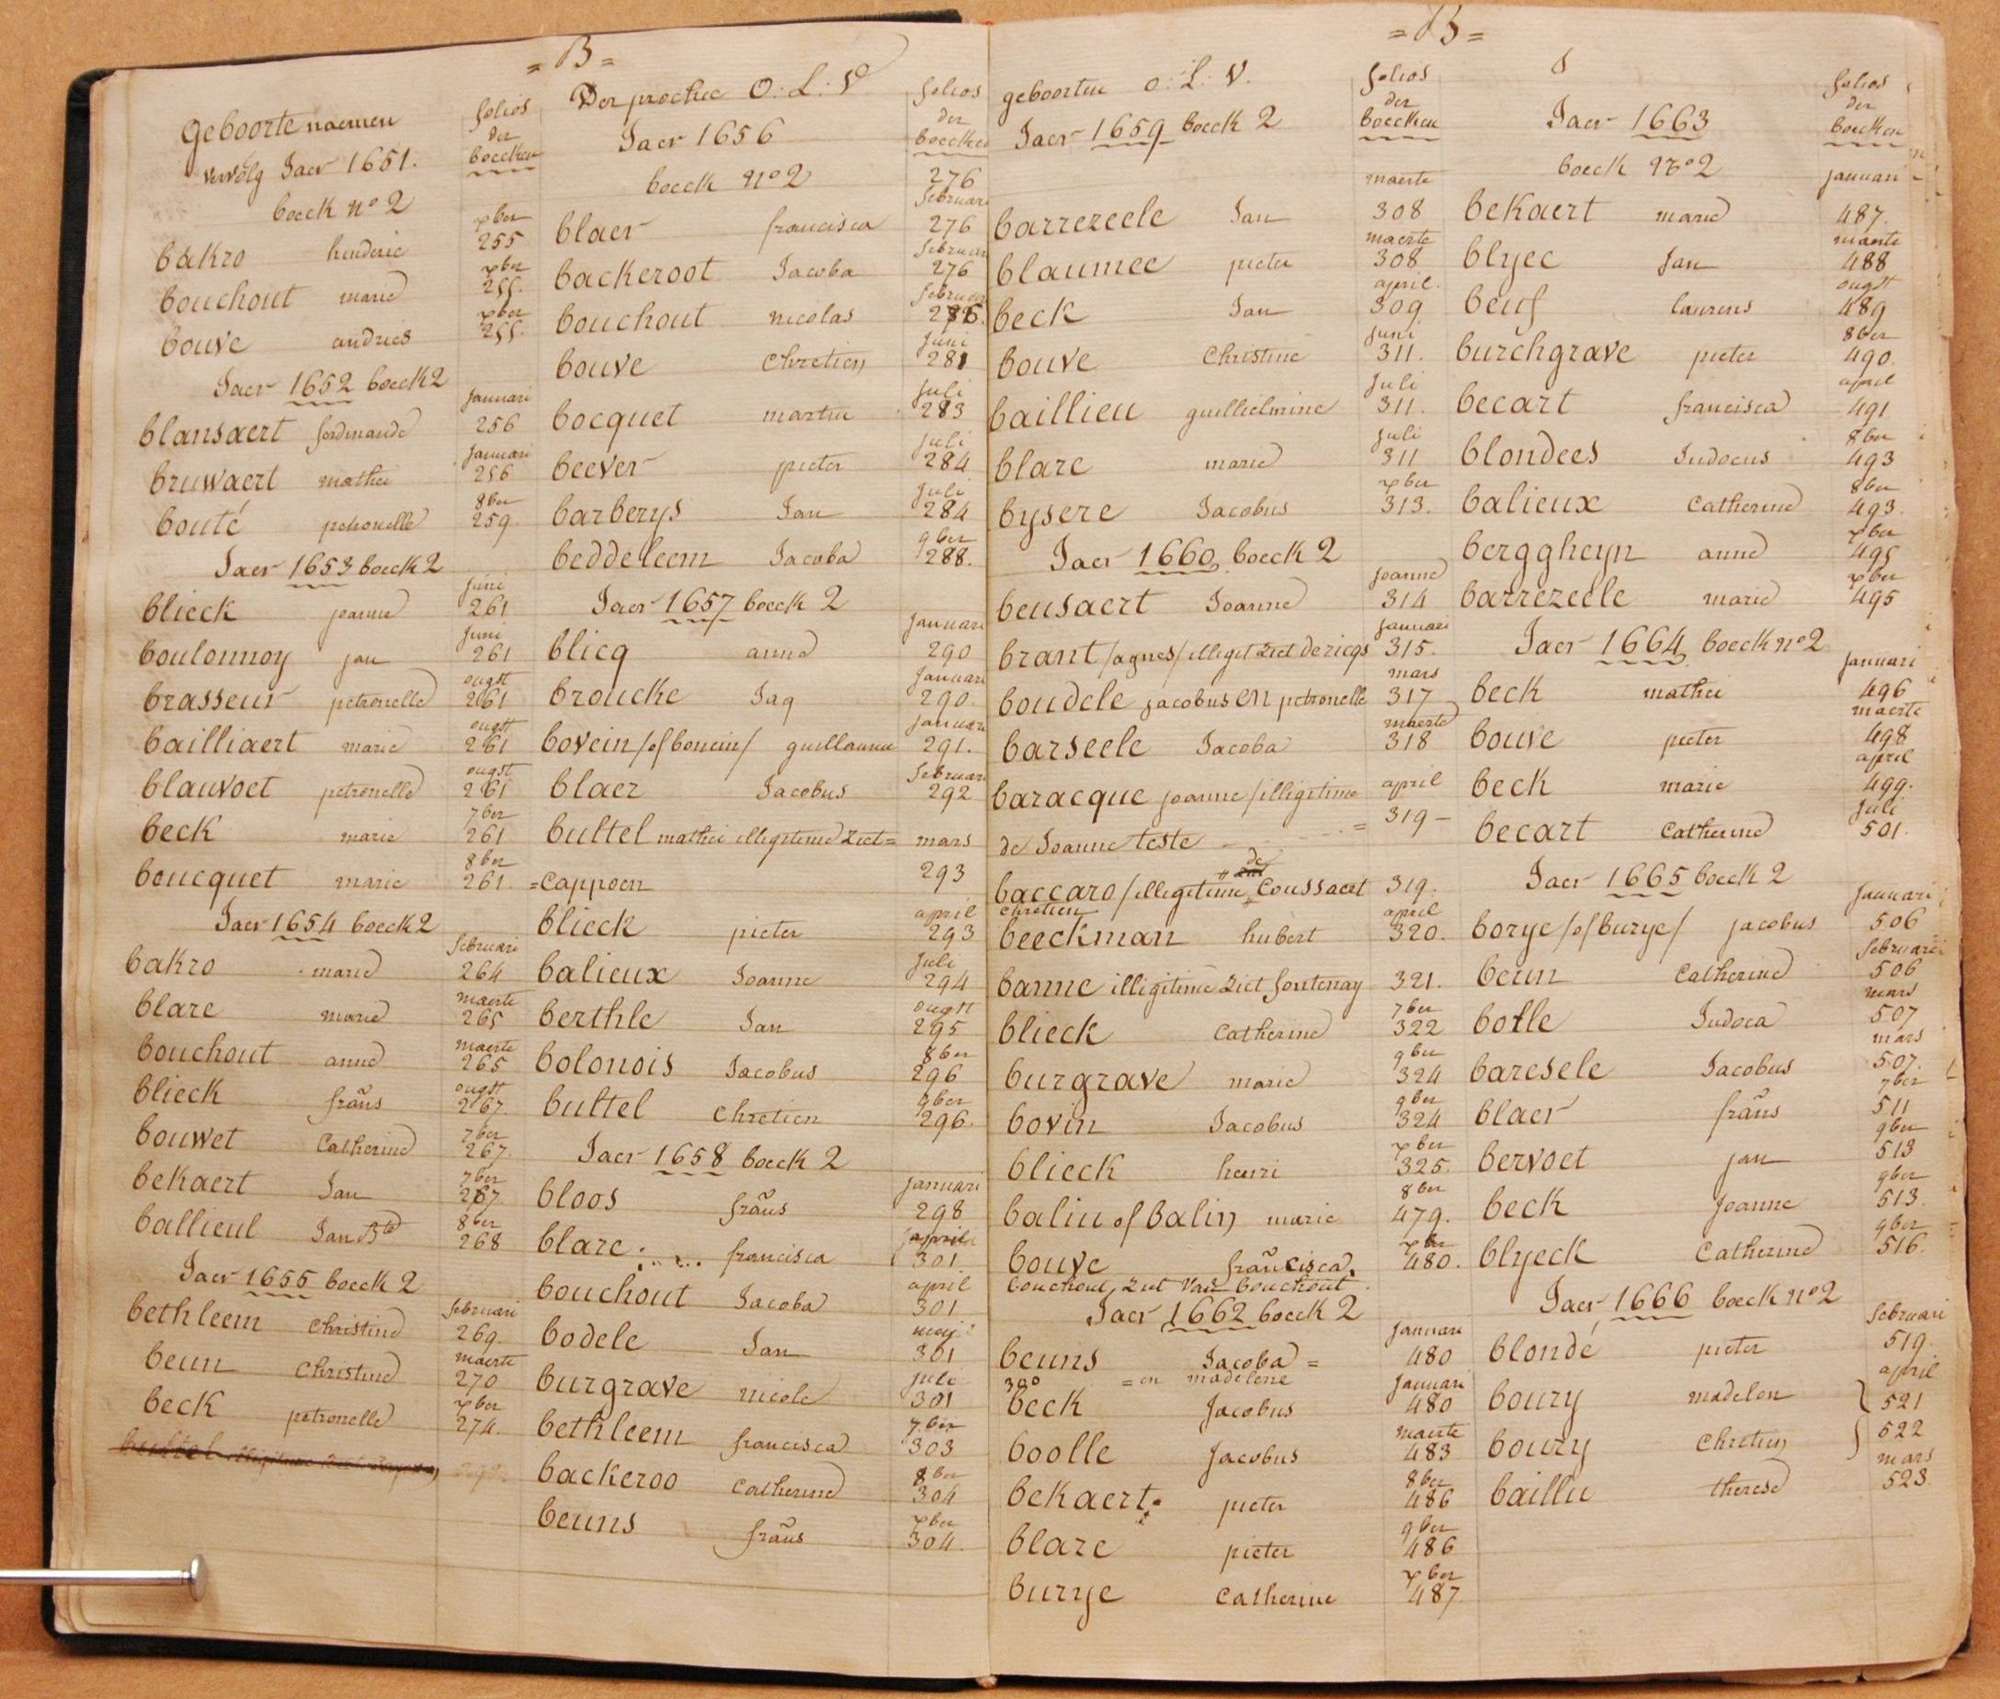 = B =
Geboorte naemen
folios
der
boecken
vervolg Jaer 1651.
boeck nº 2
bakro hinderic xber 255
bouchout marie xber 255.
bouve andries xber 255.
Jaer 1652 boeck 2
blansaert ferdinande Januari 256
bruwaert mathei Januari 256
bouté petronelle 8ber 259.
Jaer 1653 boeck 2
blieck joanne Juni 261
boulonnoy jan Juni 261
brasseur petronelle ougst 261
bailliaert marie ougst 261
blauvoet petronelle ougst 261
beck marie 7ber 261
boucquet marie 8ber 261.
Jaer 1654 boeck 2
bakro marie februari 264
blare marie maerte 265
bouchout anne maerte 265
blieck frãns ougst 267.
bouwet Catherine 7ber 267.
bekaert Jan 7ber 267.
ballieul Jan Bte 8ber 268
Jaer 1655 boeck 2
bethleem Christine februari 269.
beun Christine maerte 270
beck petronelle xber 274.
Der prochie O: L: V
folios
der
boecken
Jaer 1656
boeck Nº 2
276
blaer francisca februari 276
backeroot Jacoba februari 276
bouchout nicolas februari 276.
bouve Chretien Juni 281
bocquet martin Juli 283
beever pieter Juli 284
barberys Jan Juli 284
beddeleem Jacoba 9ber 288.
Jaer 1657 boeck 2
blicq anna Januari 290
broucke Jaq Januari 290.
bovein /of bouein/ guillaume Januari 291.
blaer Jacobus februari 292
bultel mathei illegitime ziet = mars
= Cappoen 293
blieck pieter april 293
balieux Joanne Juli 294
berthle Jan ougst 295
bolonois Jacobus 8ber 296
bultel Chretien 9ber 296.
Jaer 1658 boeck 2
bloos frãns Januari 298
blare francisca april 301.
bouchout Jacoba april 301
bodele Jan meij 301
burgrave nicole juli 301
bethleem francisca 7ber 303
backeroo Catherine 8ber 304
beuns frãns xber 304.
= B =
geboorten O: L: V.
folios
der
boecken
Jaer 1659 boeck 2
barrezeele Jan maerte 308
blaumee pieter maerte 308
beck Jan april. 309
bouve Christine Juni 311.
baillieu guillielmine Juli 311.
blare marie Juli 311
bysere Jacobus xber 313.
Jaer 1660 boeck 2
beusaert Joanne Joanne 314
brant /agnes/ illegit ziet de ricqs Januari 315.
boudele jacobus en petronelle mars 317
barseele Jacoba maerte 318
baracque joanne /illigitime april
de Joanne teste = 319 -
de
baccaro /illegitime Coussaert 319.
chretien
beeckman hubert april 320.
banne illigitime ziet fontenay 321.
blieck Catherine 7ber 322
burgrave marie 9ber 324
bovin Jacobus 9ber 324
blieck henri xber 325.
balin of balin marie 8ber 479.
bouve francisca. xber 480.
bouchout zut Van bouchout
Jaer 1662 boeck 2
beuns Jacoba = Januari 480
= en madelene
beck Jacobus Januari 480
boolle Jacobus maerte 483
bekaert pieter 8ber 486
blare pieter 9ber 486
burye Catherine xber 487.
folios
der
boecken
Jaer 1663
boeck Nº 2
bekaert marie januari 487.
blyec Jan maerte 488
beuf laurens ougst 489
burchgrave pieter 8ber 490.
becart francisca april 491
blondees Judocus 8ber 493
balieux Catherine 8ber 493.
berggheyn anne xber 495
barrezeele marie xber 495
Jaer 1664 boeck nº 2
beck mathei Januari 496
bouve pieter maerte 498
beck marie april 499.
becart Catherine Juli 501.
Jaer 1665 boeck 2
borye /of burye/ jacobus Januari 506
beun Catherine februari 506
bolle Judoca mars 507
baresele Jacobus mars 507.
blaer frãns 7ber 511
bervoet jan 9ber 513
beck Joanne 9ber 513.
blyeck Catherine 9ber 516.
Jaer 1666 boeck nº 2
blondé pieter februari 519.
boury madelen april 521
boury Chretien 522
baillu therese mars 523